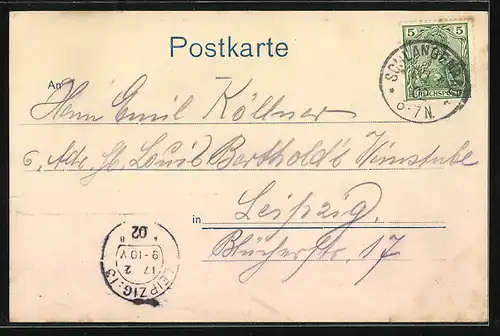 Postkarte
5 5
REICHSPOST
SCHLANGENB
6-7N.
An
Herrn Emil Köllner
Louis Berthold's Weinstube
in
Leipzig.
Blücherstr. 17
LEIPZIG 13
17 2
9-10 V
02